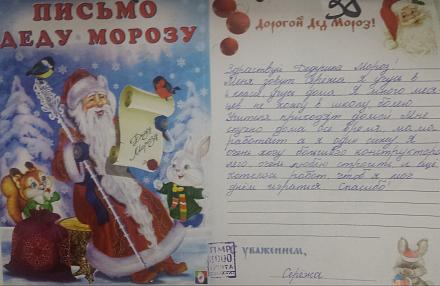 ПИСЬМО
ДЕДУ МОРОЗУ
Деду
Морозу
Дорогой Дед Мороз!
Здравствуй Дедушка Мороз!
Меня зовут Сережа. Я учусь в
классе учусь дома. Я много меся
цев не хожу в школу болею
Учителя приходят домой. Мне
скучно дома все время, мама
работает а я один сижу. Я
очень хочу большого конструктора
лего очень люблю строить и ещё
хотелось робот, чтоб я мог
днём играться Спасибо!
ПМР
ПОЧТА
С уважением,
Сережа